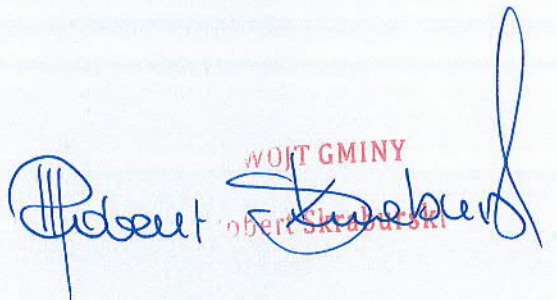 WÓJT GMINY
Robert Skraburski
Robert Skraburski